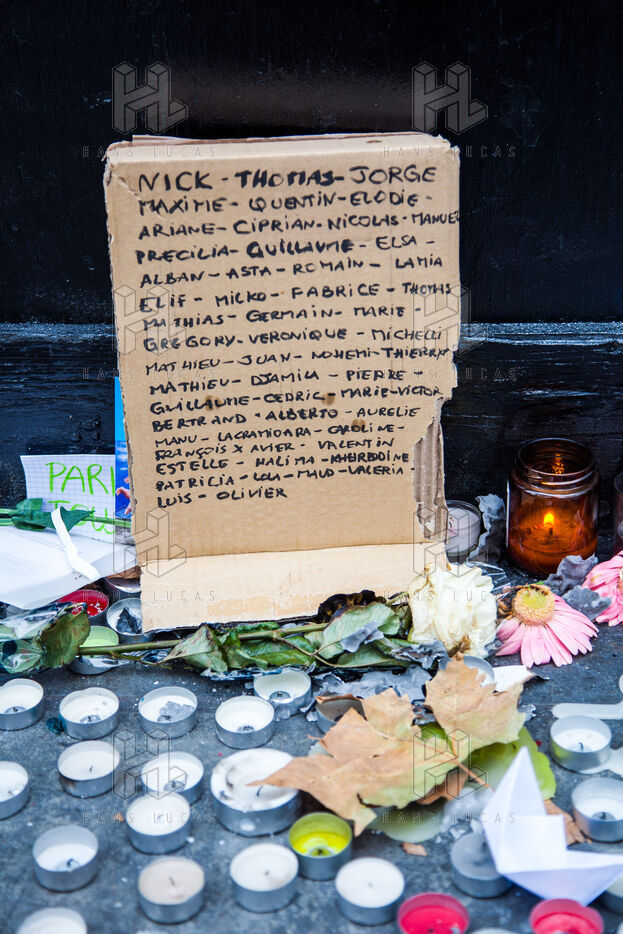 NICK - THOMAS - JORGE
MAXIME - QUENTIN - ELODIE -
ARIANE - CIPRIAN - NICOLAS - MANUEL
PRECILIA - GUILLAUME - ELSA -
ALBAN - ASTA - ROMAIN - LAMIA
ELIF - MILKO - FABRICE - THOMAS
MATHIAS - GERMAIN - MARIE -
GREGORY - VERONIQUE - MICHELLI
MATHIEU - JUAN - NOHEMI - THIERRY
MATHIEU - DJAMILA - PIERRE -
GUILLAUME - CEDRIC - MARIE-VICTOR
BERTRAND - ALBERTO - AURELIE
MANU - LACRAMIOARA - CAROLINE -
FRANÇOIS XAVIER - VALENTIN
ESTELLE - HALIMA - KHEREDDINE
PATRICIA - LOLA - MAUD - VALERIA -
LUIS - OLIVIER
PARI
HANS LUCAS